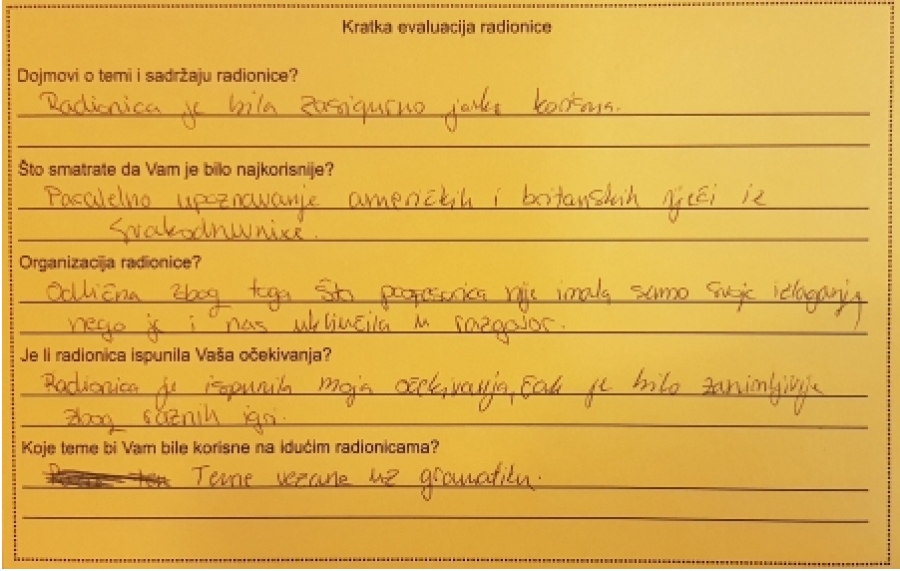 Kratka evaluacija radionice
Dojmovi o temi i sadržaju radionice?
Radionica je bila zasigurno jako korisna.
Što smatrate da Vam je bilo najkorisnije?
Paralelno upoznavanje američkih i britanskih riječi iz
svakodnevnice.
Organizacija radionice?
Odlična zbog toga što profesorica nije imala samo svoje izlaganje,
nego je i nas uključila u razgovor.
Je li radionica ispunila Vaša očekivanja?
Radionica je ispunila moja očekivanja, čak je bilo zanimljivije
zbog raznih igri.
Koje teme bi Vam bile korisne na idućim radionicama?
Teme vezane uz gramatiku.